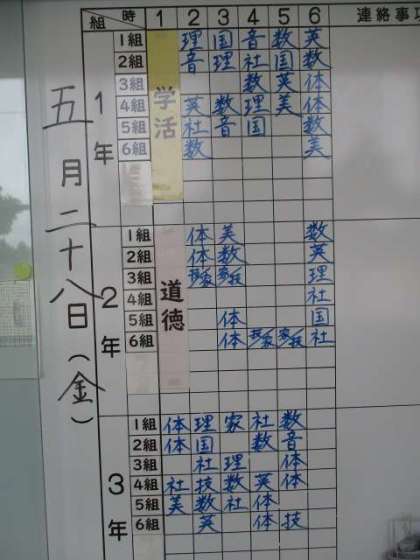 組 時 1 2 3 4 5 6 連絡事項
五月二十八日(金)
1年
学活
1組 理 国 音 数 英
2組 音 理 社 国 数
3組 数 英 体
4組 英 数 理 美 体
5組 社 音 国 数
6組 数 美
2年
道徳
1組 体 美 数
2組 体 数 英
3組 技家 家技 理
4組 社
5組 体 国
6組 体 技家 家技 社
3年
1組 体 理 家 社 数
2組 体 国 数 音
3組 社 理 体
4組 社 技 数 英 体
5組 美 数 社 体
6組 英 体 技